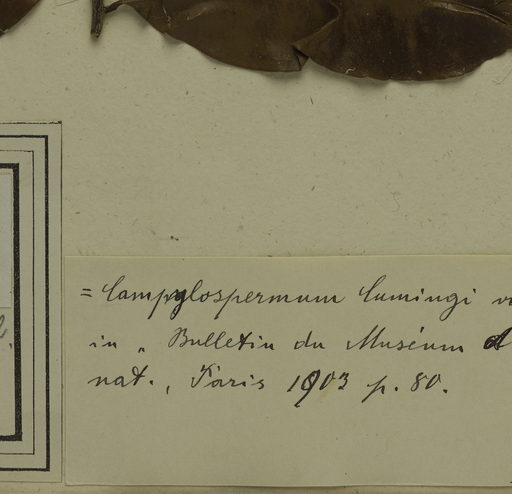 = Campylospermum Cumingi
in „ Bulletin du Muséum
nat., Paris 1903 p. 80.